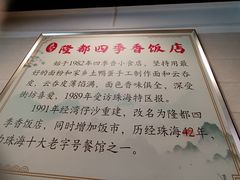 隆都四季香饭店
始于1982年四季香小食店，坚持用最
好的面粉和家乡土鸭蛋手工制作面和云吞
皮，云吞皮薄馅满，面色香味俱全，深受
街坊喜爱，1989年受访珠海特区报。
1991年经湾仔沙重建，改名为隆都四
季香饭店，同时增加饭市，历经珠海42年，
珠海十大老字号餐馆之一。